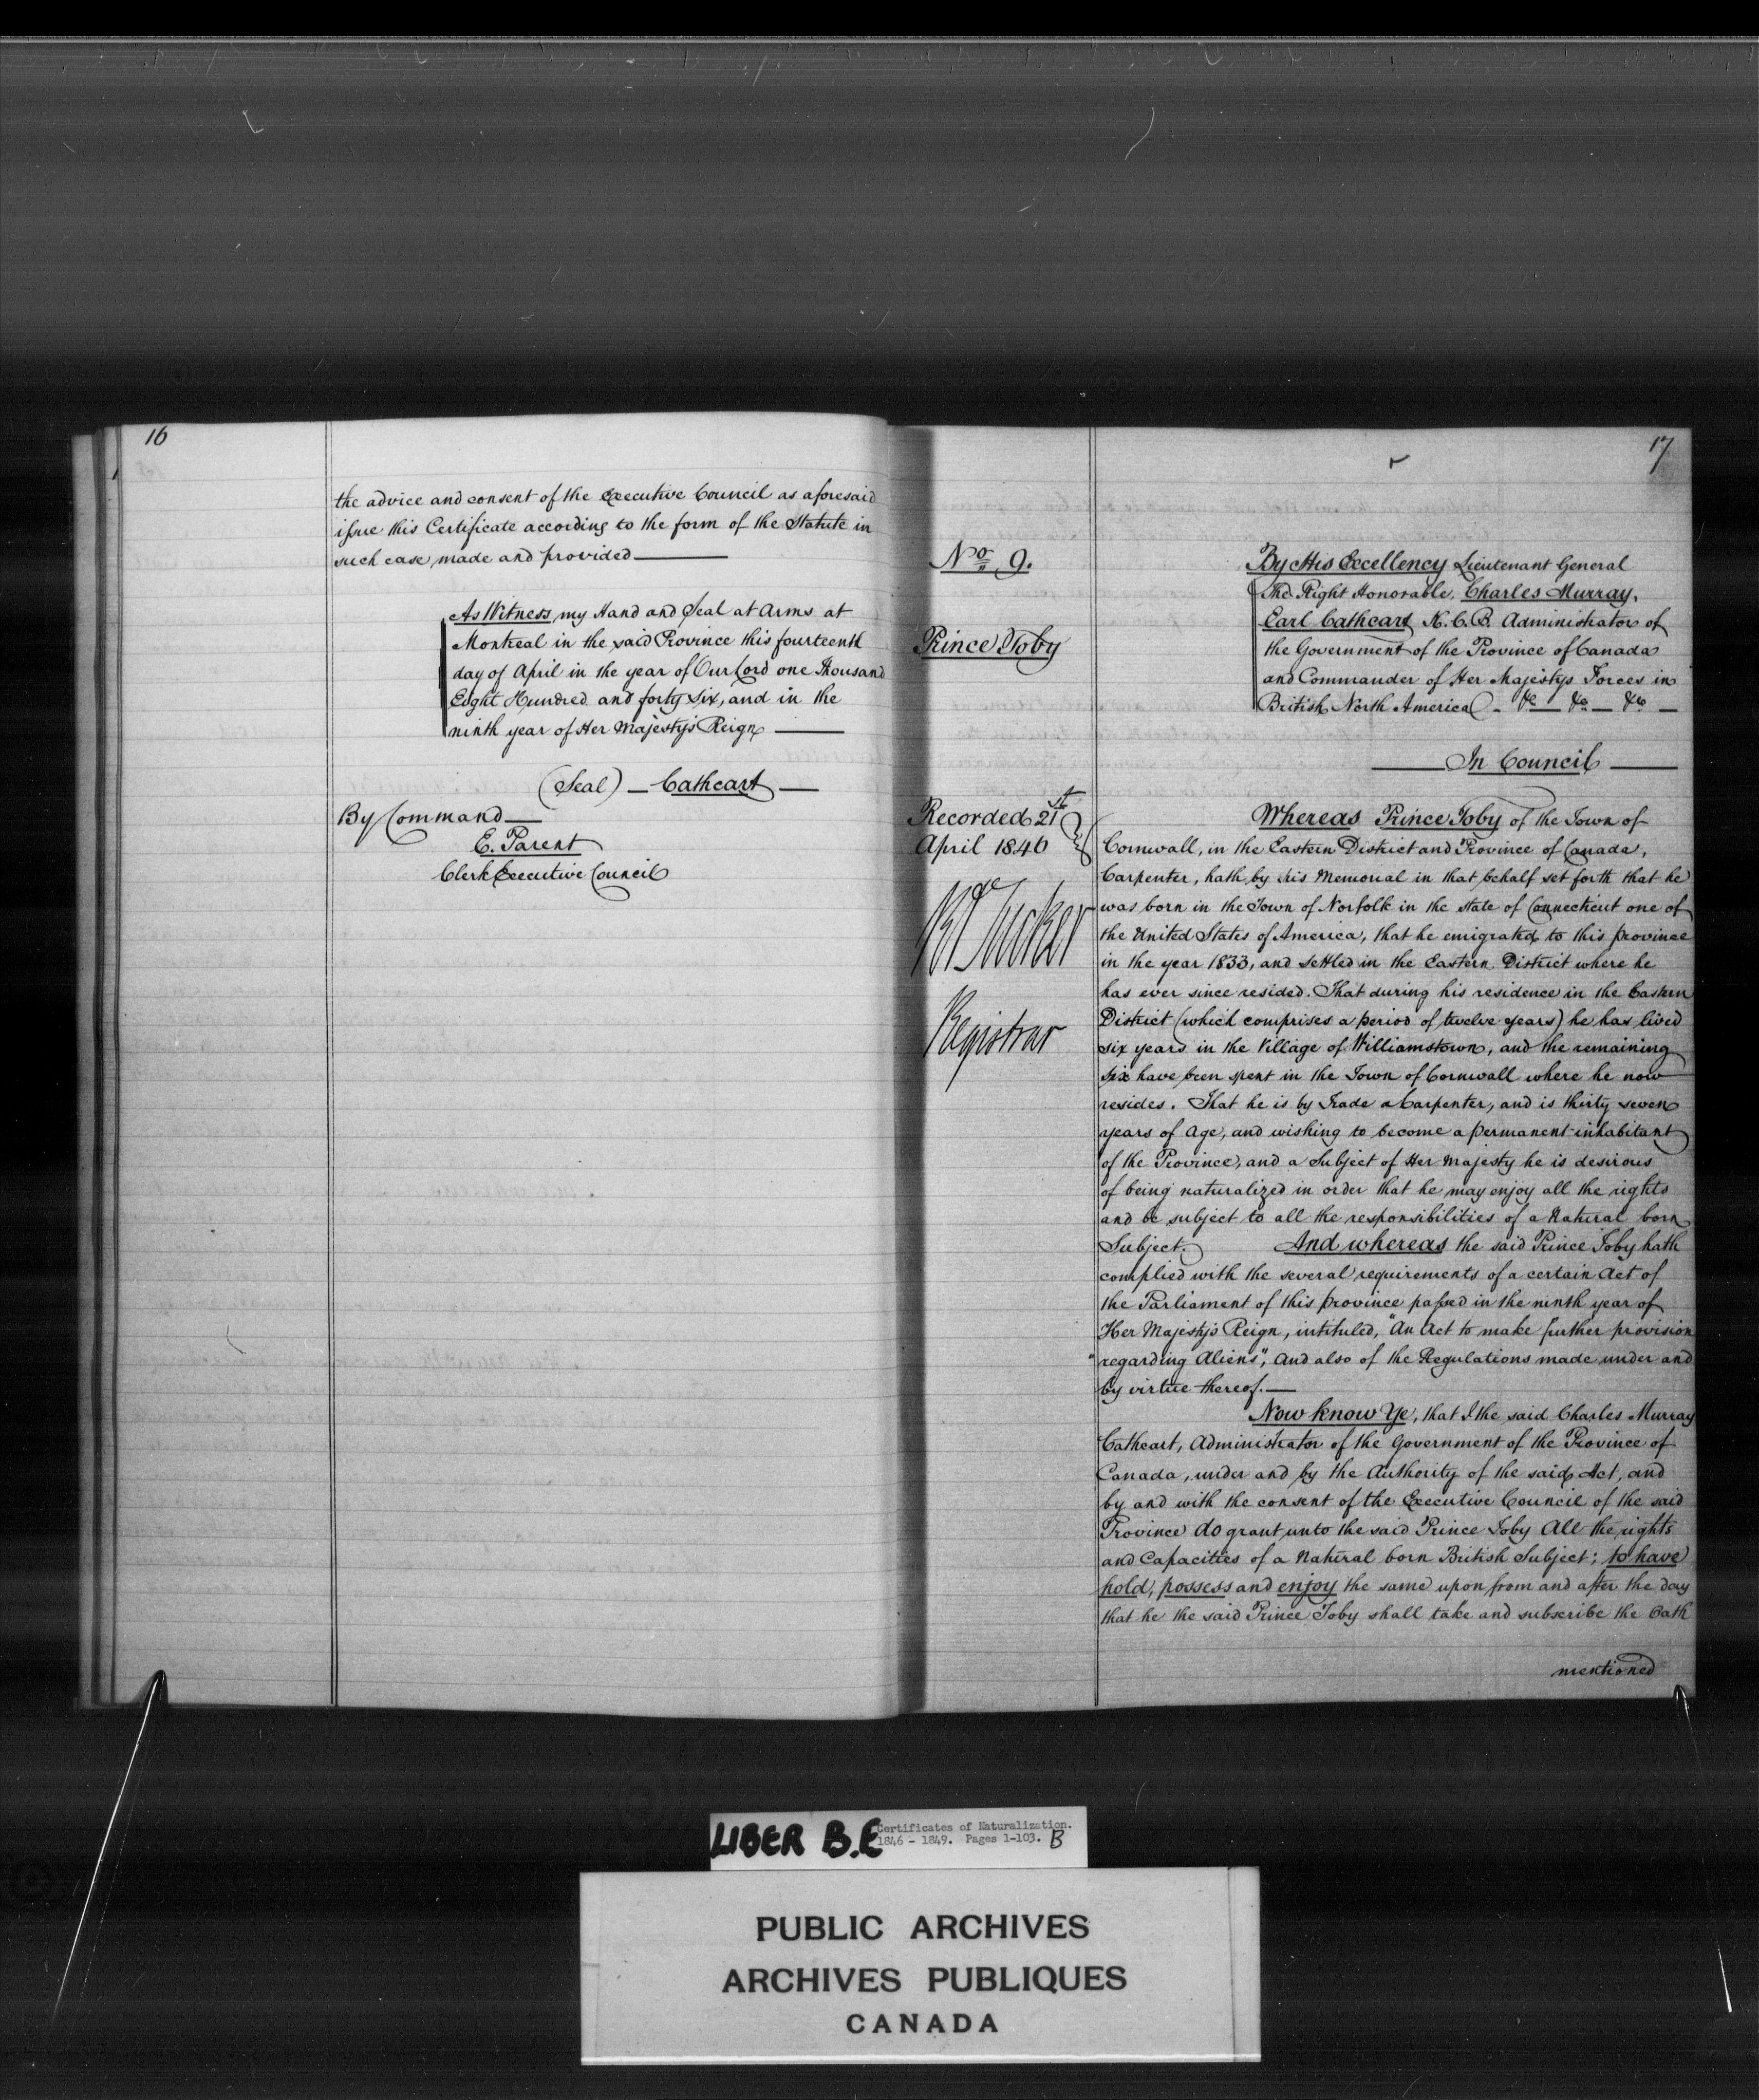 16
the advice and consent of the Executive Council as aforesaid
issue this Certificate according to the form of the Statute in
such case made and provided
As Witness my Hand and Seal at Arms at
Montreal in the said Province this fourteenth
day of April in the year of Our Lord one Thousand
Eight Hundred and forty six, and in the
ninth year of Her Majesty's Reign
(Seal) — Cathcart —
By Command
E. Parent
Clerk Executive Council
17
No 9.
Prince Toby
Recorded 21st
April 1846
R Tucker
Registrar
By His Excellency Lieutenant General
The Right Honorable, Charles Murray,
Earl Cathcart, K.C.B. Administrator of
the Government of the Province of Canada
and Commander of Her Majestys Forces in
British North America &c — &c — &c —
In Council
Whereas Prince Toby of the Town of
Cornwall, in the Eastern District and Province of Canada,
Carpenter, hath by his Memorial in that behalf set forth that he
was born in the Town of Norfolk in the state of Connecticut one of
the United States of America, that he emigrated to this province
in the year 1833, and settled in the Eastern District where he
has ever since resided. That during his residence in the Eastern
District (which comprises a period of twelve years) he has lived
six years in the Village of Williamstown, and the remaining
six have been spent in the Town of Cornwall where he now
resides. That he is by Trade a Carpenter, and is thirty seven
years of Age, and wishing to become a permanent inhabitant
of the Province, and a Subject of Her Majesty he is desirous
of being naturalized in order that he may enjoy all the rights
and be subject to all the responsibilities of a Natural born
Subject. And whereas the said Prince Toby hath
complied with the several requirements of a certain Act of
the Parliament of this province passed in the ninth year of
Her Majesty's Reign, intituled, "An Act to make further provision
"regarding Aliens", and also of the Regulations made under and
by virtue thereof.—
Now know Ye, that I the said Charles Murray
Cathcart, Administrator of the Government of the Province of
Canada, under and by the Authority of the said Act, and
by and with the consent of the Executive Council of the said
Province do grant unto the said Prince Toby All the rights
and Capacities of a Natural born British Subject; to have
hold, possess and enjoy the same upon from and after the day
that he the said Prince Toby shall take and subscribe the Oath
mentioned
LIBER B.E
Certificates of Naturalization.
1846 - 1849. Pages 1-103. B
PUBLIC ARCHIVES
ARCHIVES PUBLIQUES
CANADA